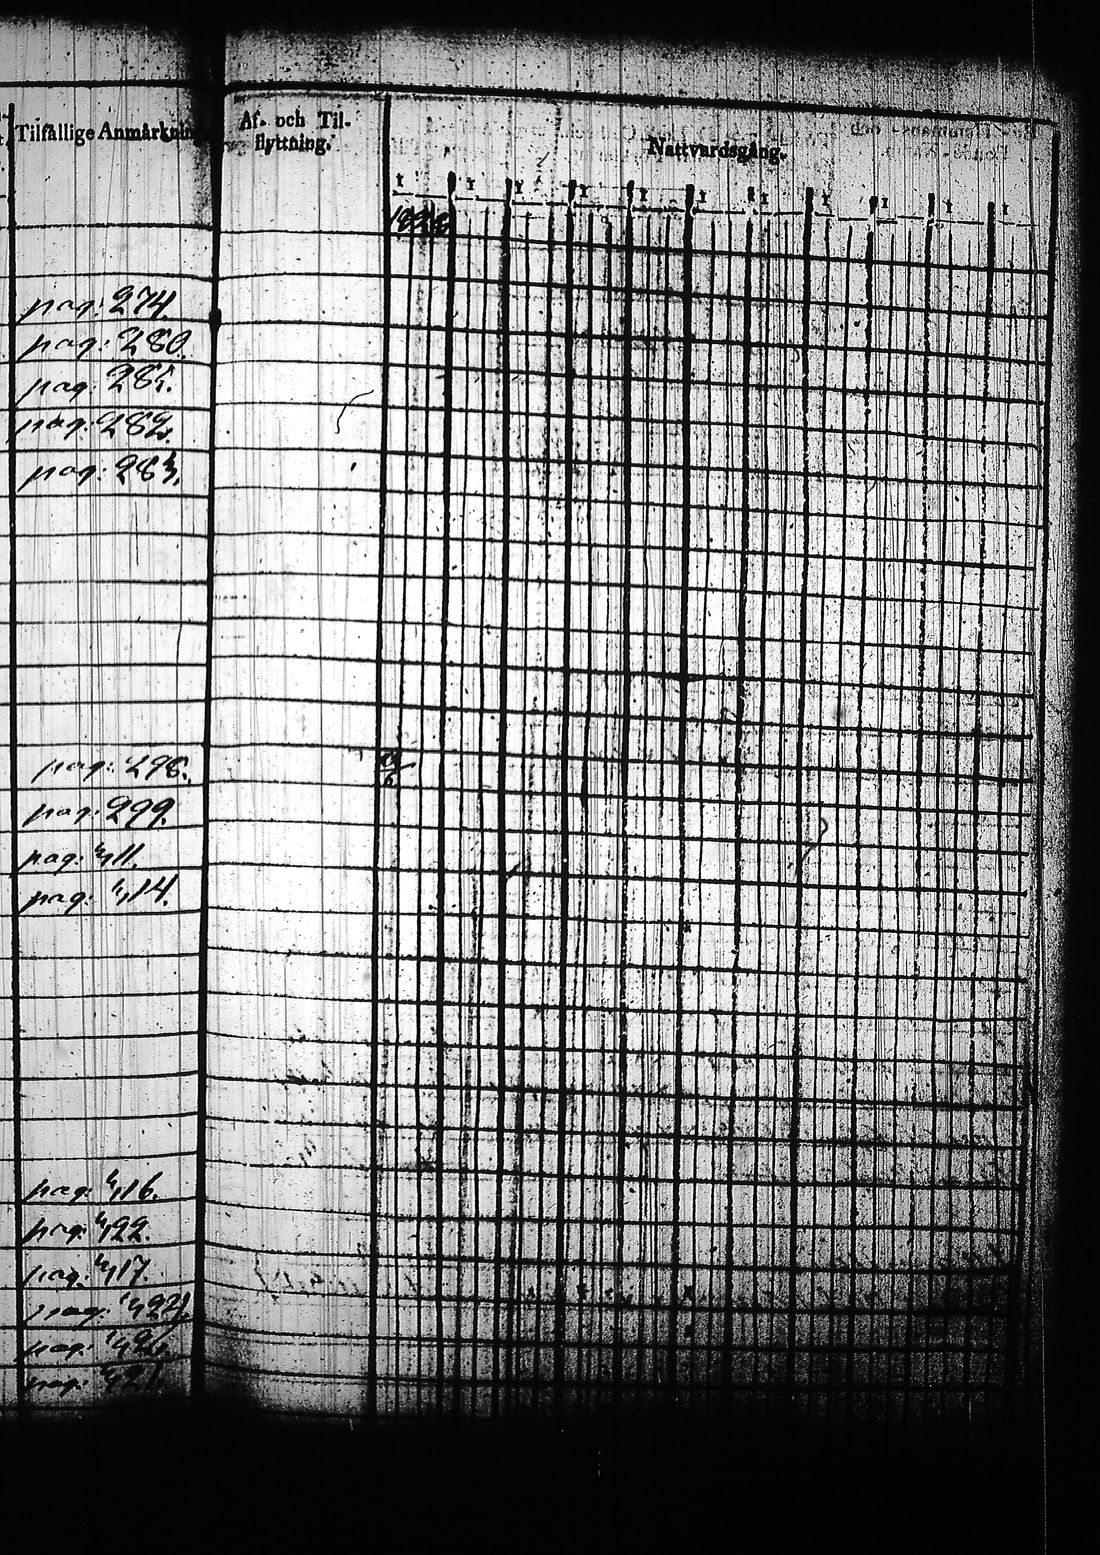 Tilfällige Anmärkning
Af- och Til-
flyttning.
Nattvardsgång.
1 1 1 1 1 1 1 1 1 1 1
pag: 274
pag: 280.
pag: 281.
pag: 282.
pag: 283.
pag: 298.
pag: 299.
pag: 411.
pag: 414.
pag: 416.
pag: 422.
pag: 417.
pag:
pag:
pag: 421.